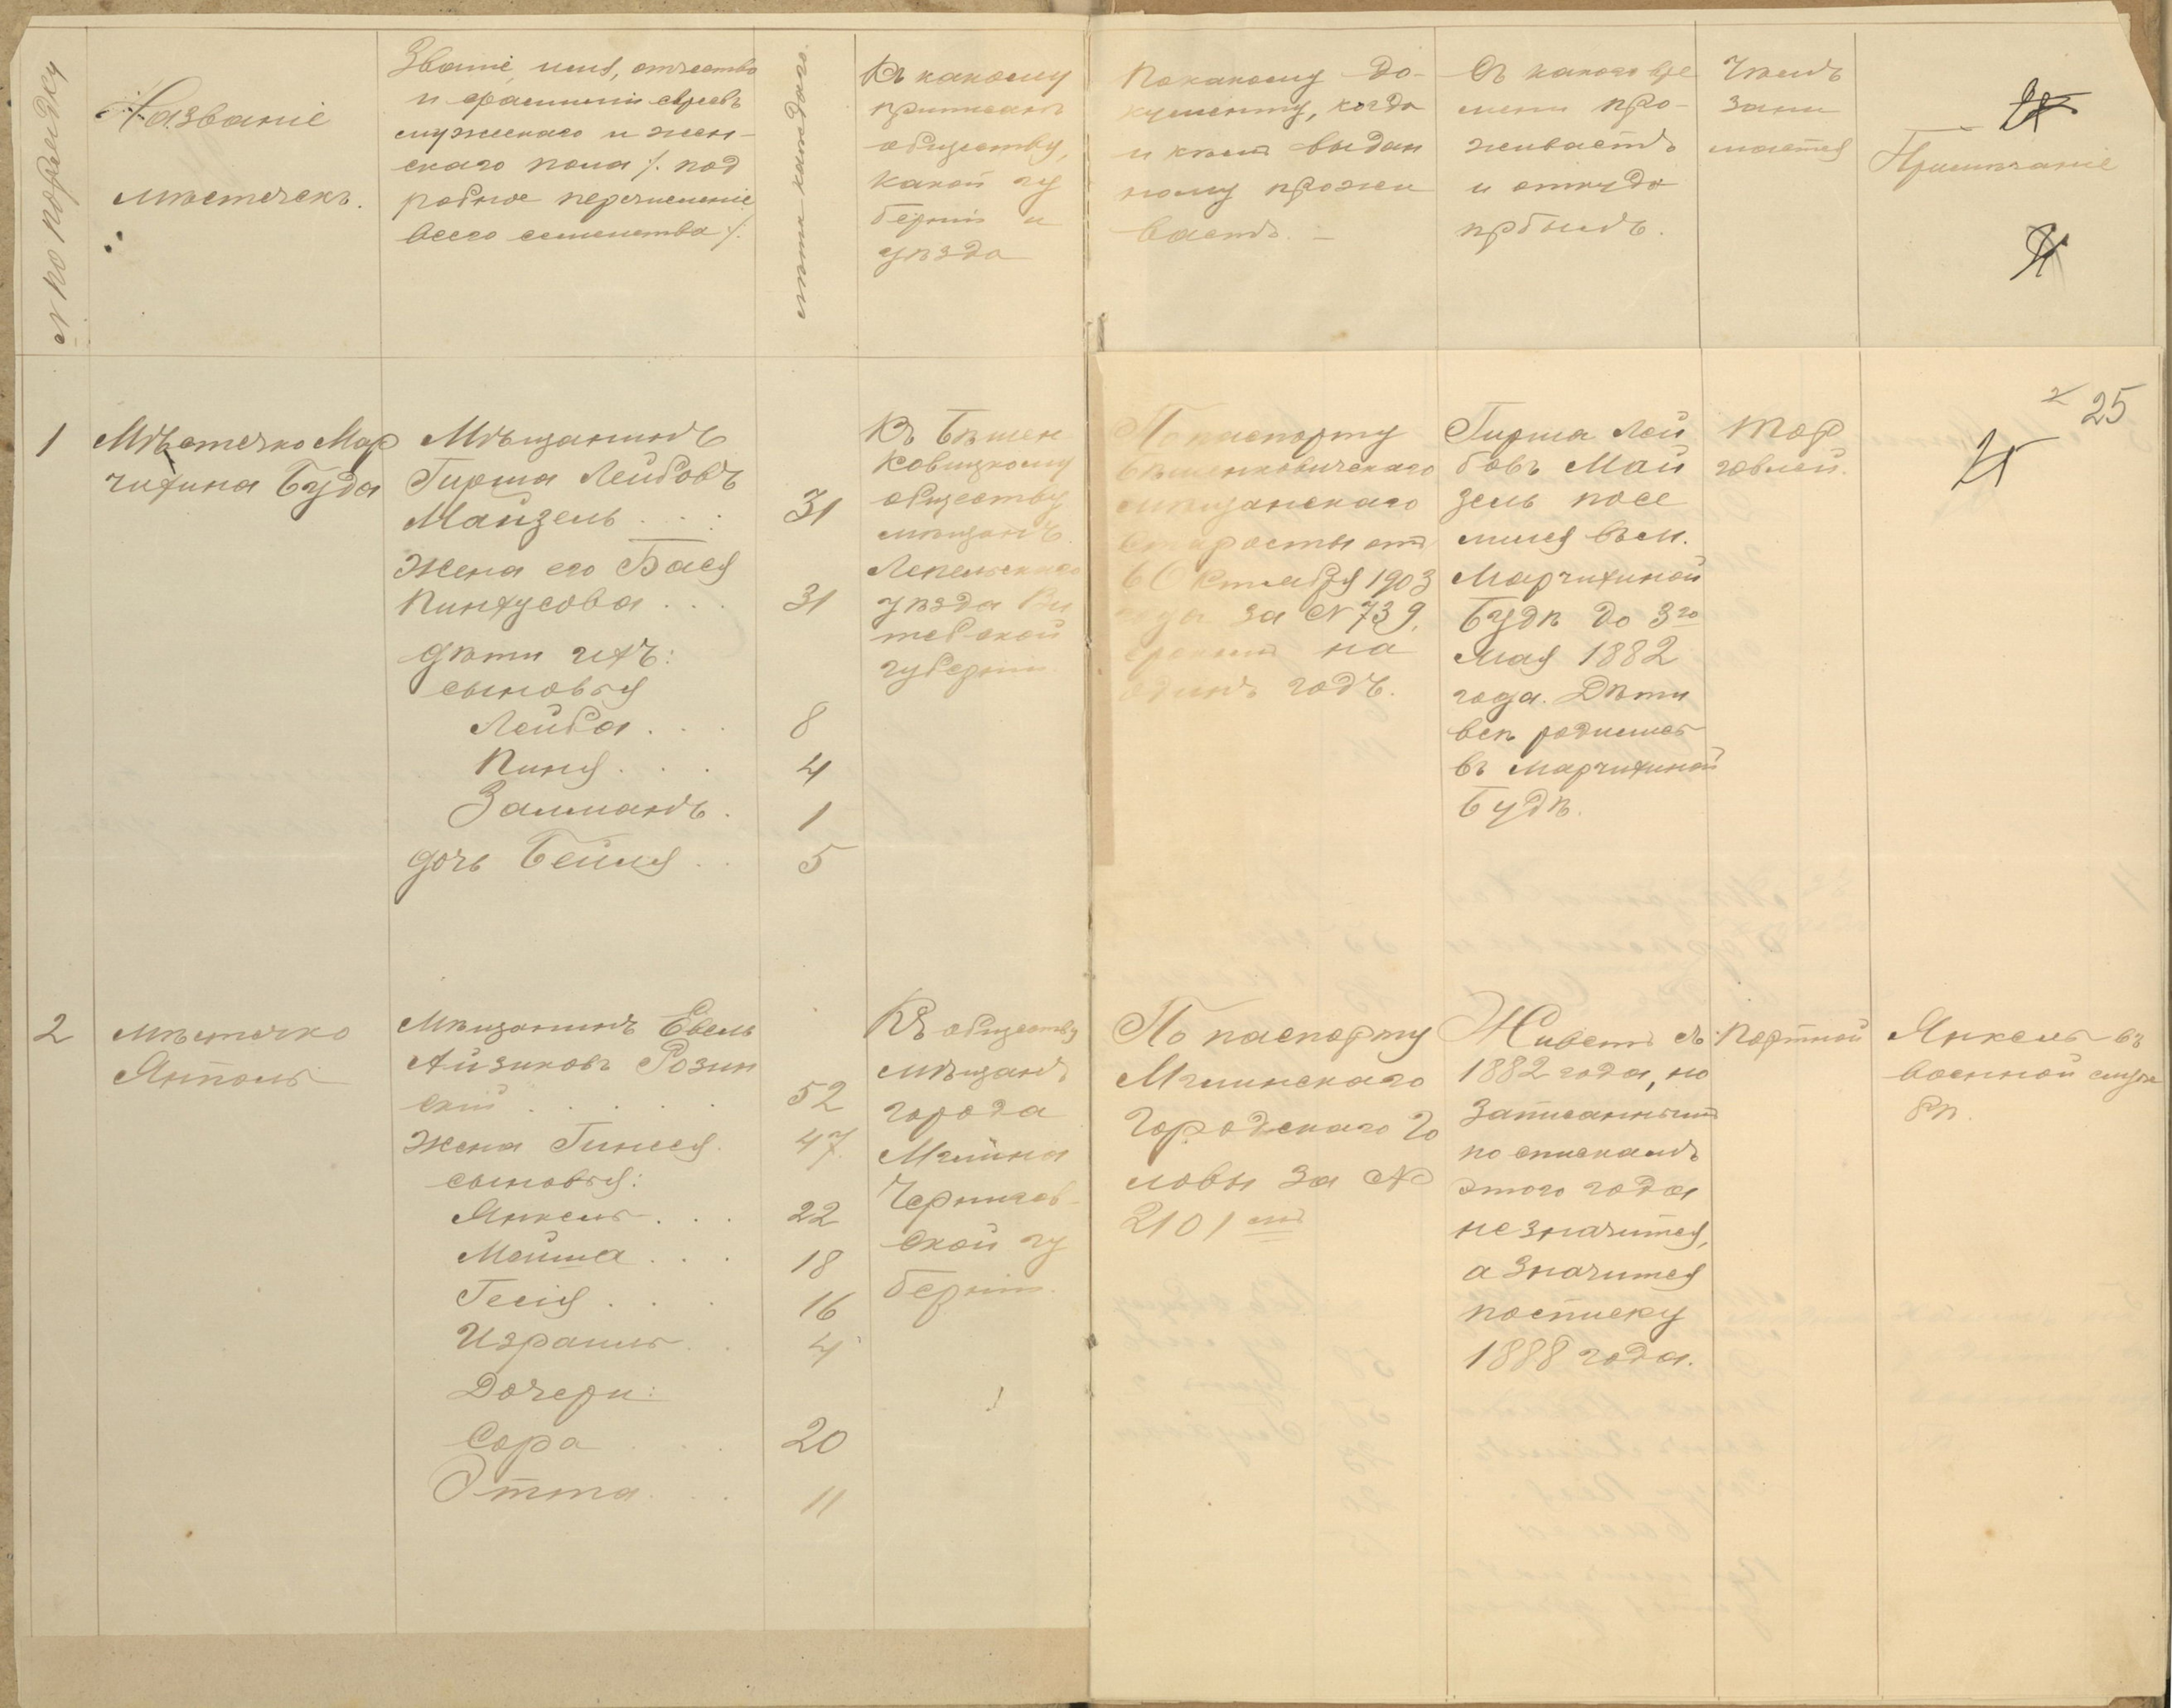 № по порядку
Названіе
мѣстечекъ.
Званіе, имя, отчество
и фамилія евреевъ
мужскаго и жен-
скаго пола /. под
робное перечисленіе
всего семейства /.
лѣта каждаго.
Къ какому
приписанъ
обществу,
какой гу
берніи и
уѣзда
По какому до-
кументу, когда
и кѣмъ выдан
ному прожи
ваетъ. –
Съ какого вре
мени про-
живаетъ
и откуда
прбылъ.
Чѣмъ
зани
мается
Примѣчаніе
25
1
Мѣстечко Мар
чихина Буда
Мѣщанинъ
Гирша Лейбовъ
Майзель . . . 31
Жена его Бася
Пинхусова . . . 31
Дѣти ихъ:
сыновья
Лейба . . . 8
Пиня . . . 4
Залманъ . 1
дочь Бейля . . 5
Къ Бѣшен
ковицкому
обществу
мѣщанъ
Лепельскаго
уѣзда Ви
тебской
губерніи.
По паспорту
Бѣшенковичскаго
мѣщанскаго
Старосты отъ
6 Октября 1903
года за № 739,
срокомъ на
одинъ годъ.
Гирша Лей
бовъ Май
зель посе
лился въ м.
Марчихиной
Будѣ до 3го
мая 1882
года. Дѣти
всѣ родились
въ Марчихиной
Будѣ.
Тор
говлей.
2
мѣстечко
Янполь
Мѣщанинъ Евель
Айзиковъ Розин
скій . . . . . 52
Жена Гинеся. 47.
сыновья:
Янкель . . . 22
Мойша . . . 18
Гесля . . . 16
Израиль . . 4
Дочери:
Сора . . . 20
Этта . . . 11
Къ обществу
мѣщанъ
города
Мглина
Чернигов-
ской гу
берніи.
По паспорту
Мглинскаго
Городскаго Го
ловы за №
2101 мъ
Живетъ съ
1882 года, но
записаннымъ
по спискамъ
этого года
не значится,
а значится
по списку
1888 года.
Портной
Янкель въ
военной служ
бѣ.